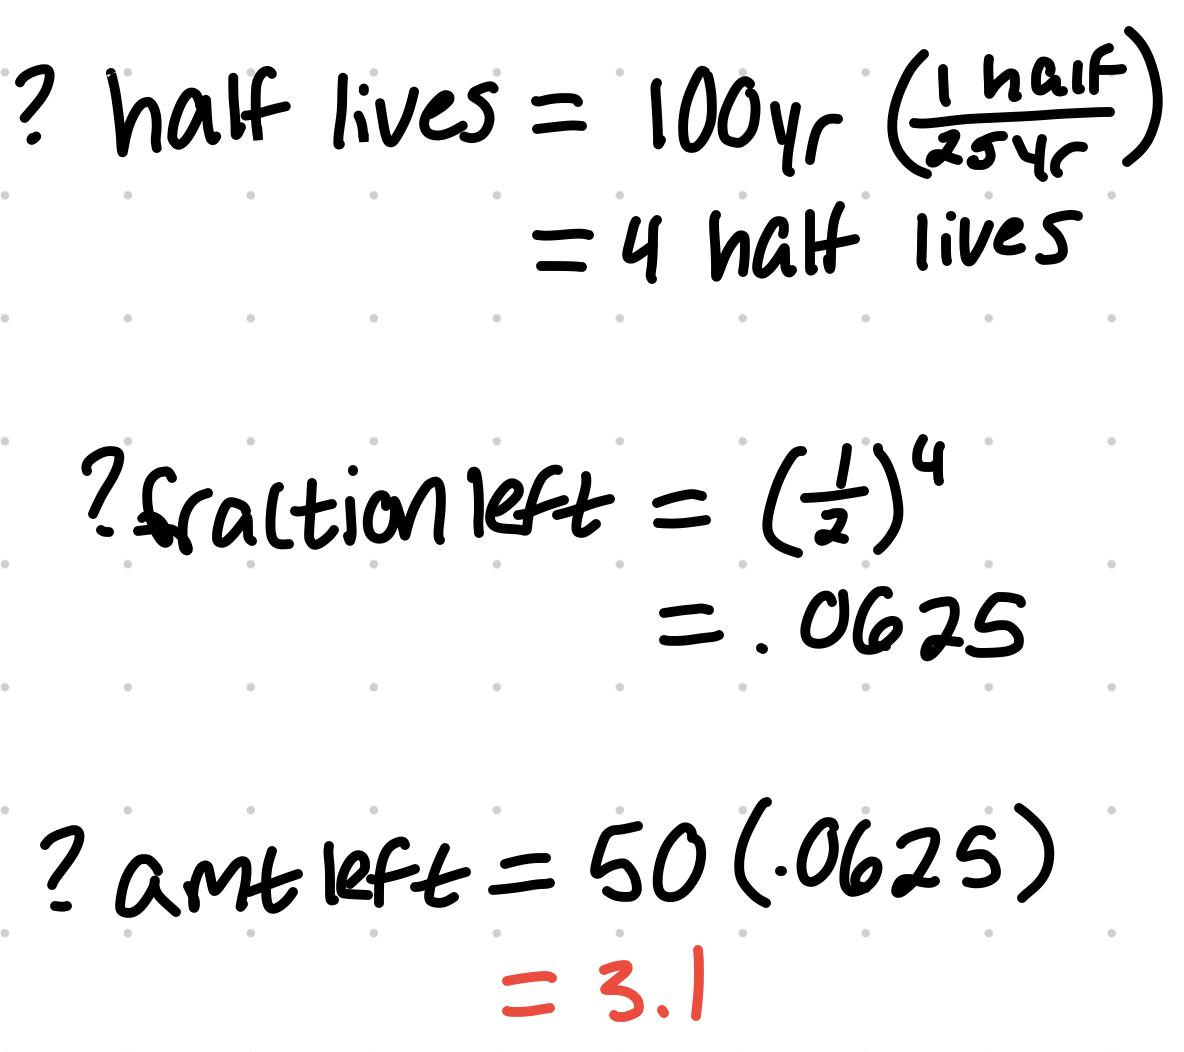 ? half lives = 100yr (1 half / 25yr)
= 4 half lives
? fraction left = (1/2)^4
= .0625
? amt left = 50 (.0625)
= 3.1